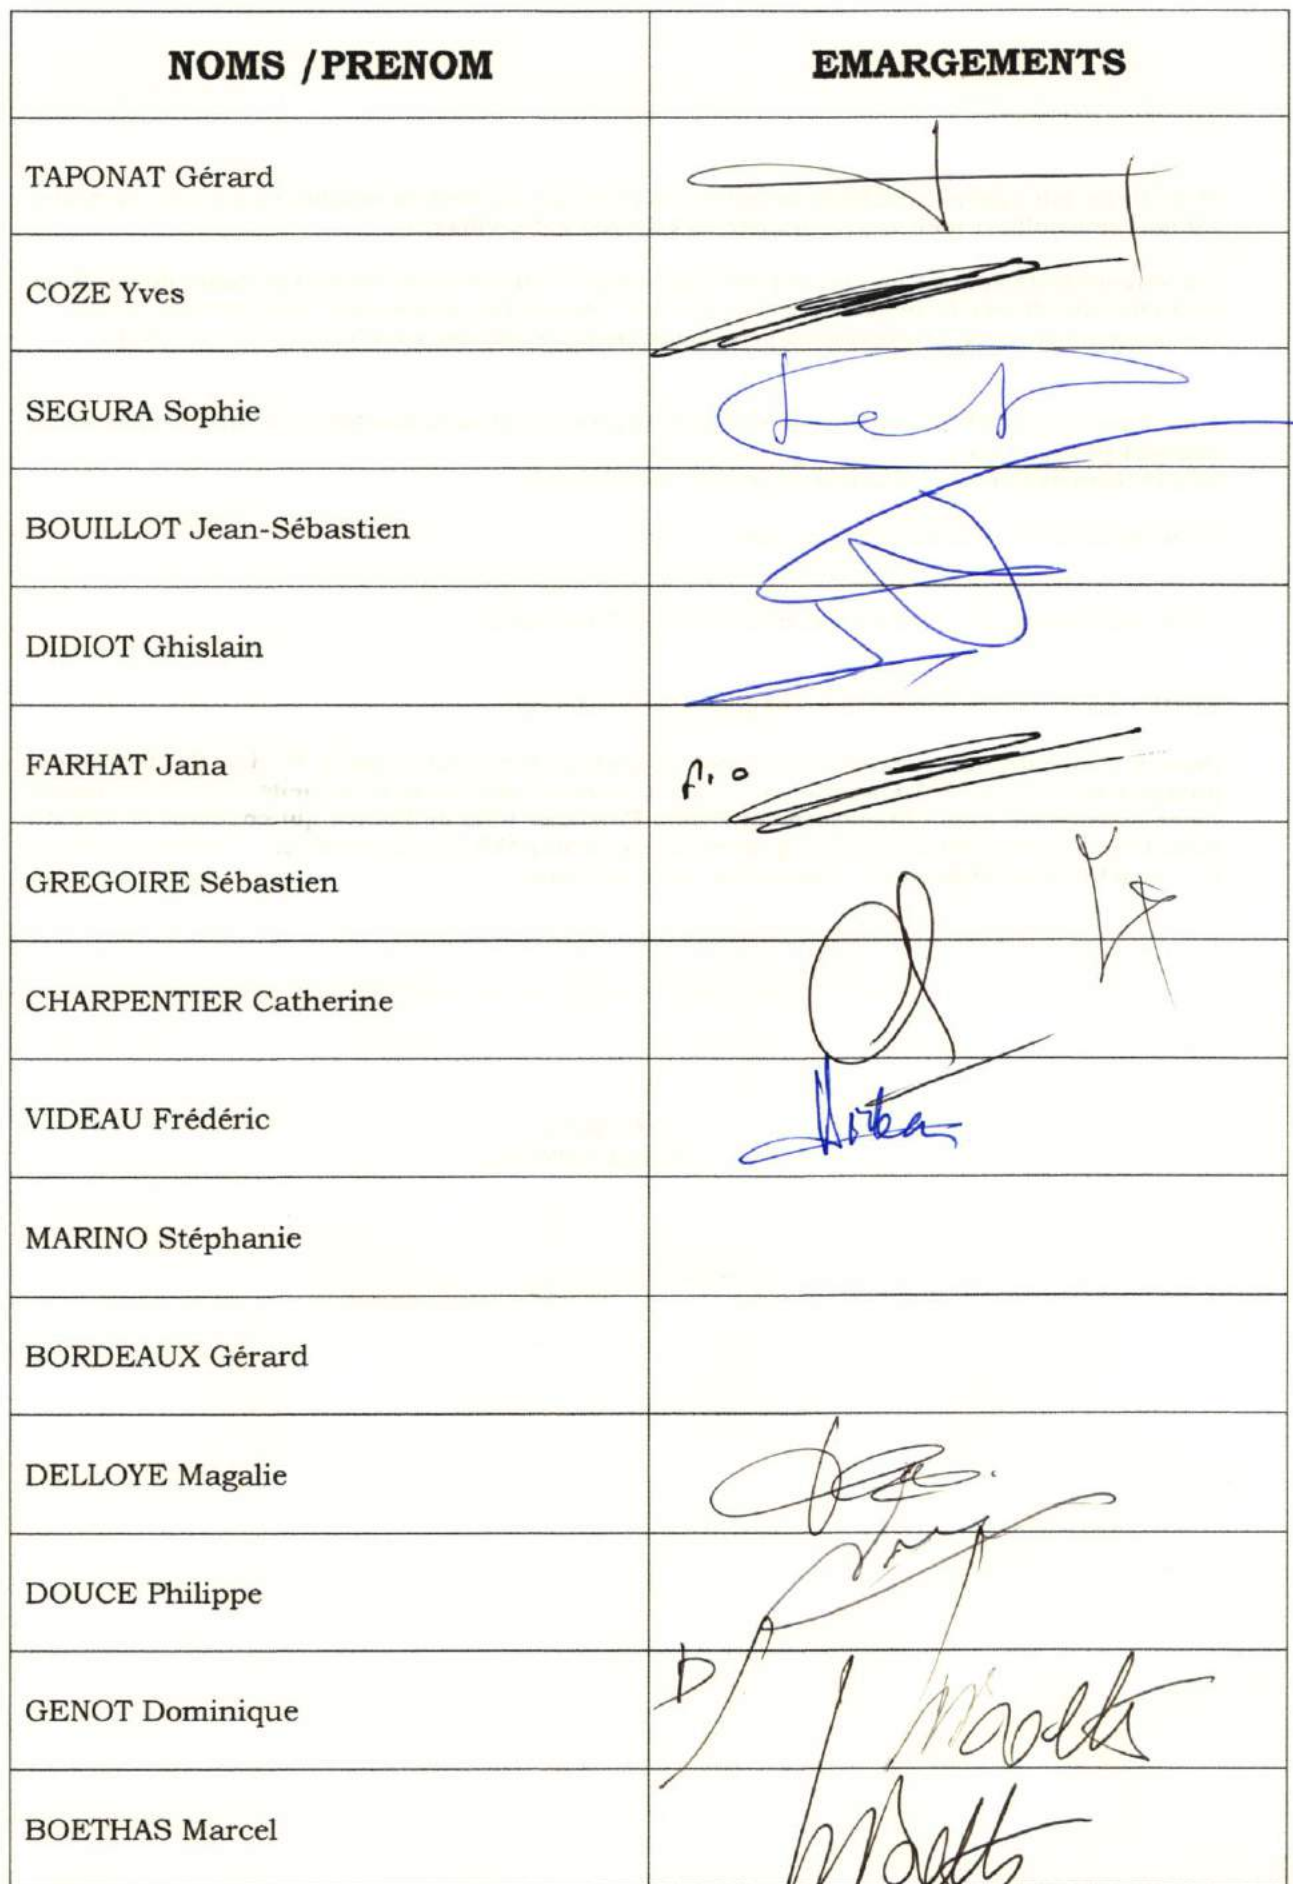 NOMS /PRENOM EMARGEMENTS
TAPONAT Gérard
COZE Yves
SEGURA Sophie
BOUILLOT Jean-Sébastien
DIDIOT Ghislain
FARHAT Jana
GREGOIRE Sébastien
CHARPENTIER Catherine
VIDEAU Frédéric
MARINO Stéphanie
BORDEAUX Gérard
DELLOYE Magalie
DOUCE Philippe
GENOT Dominique
BOETHAS Marcel